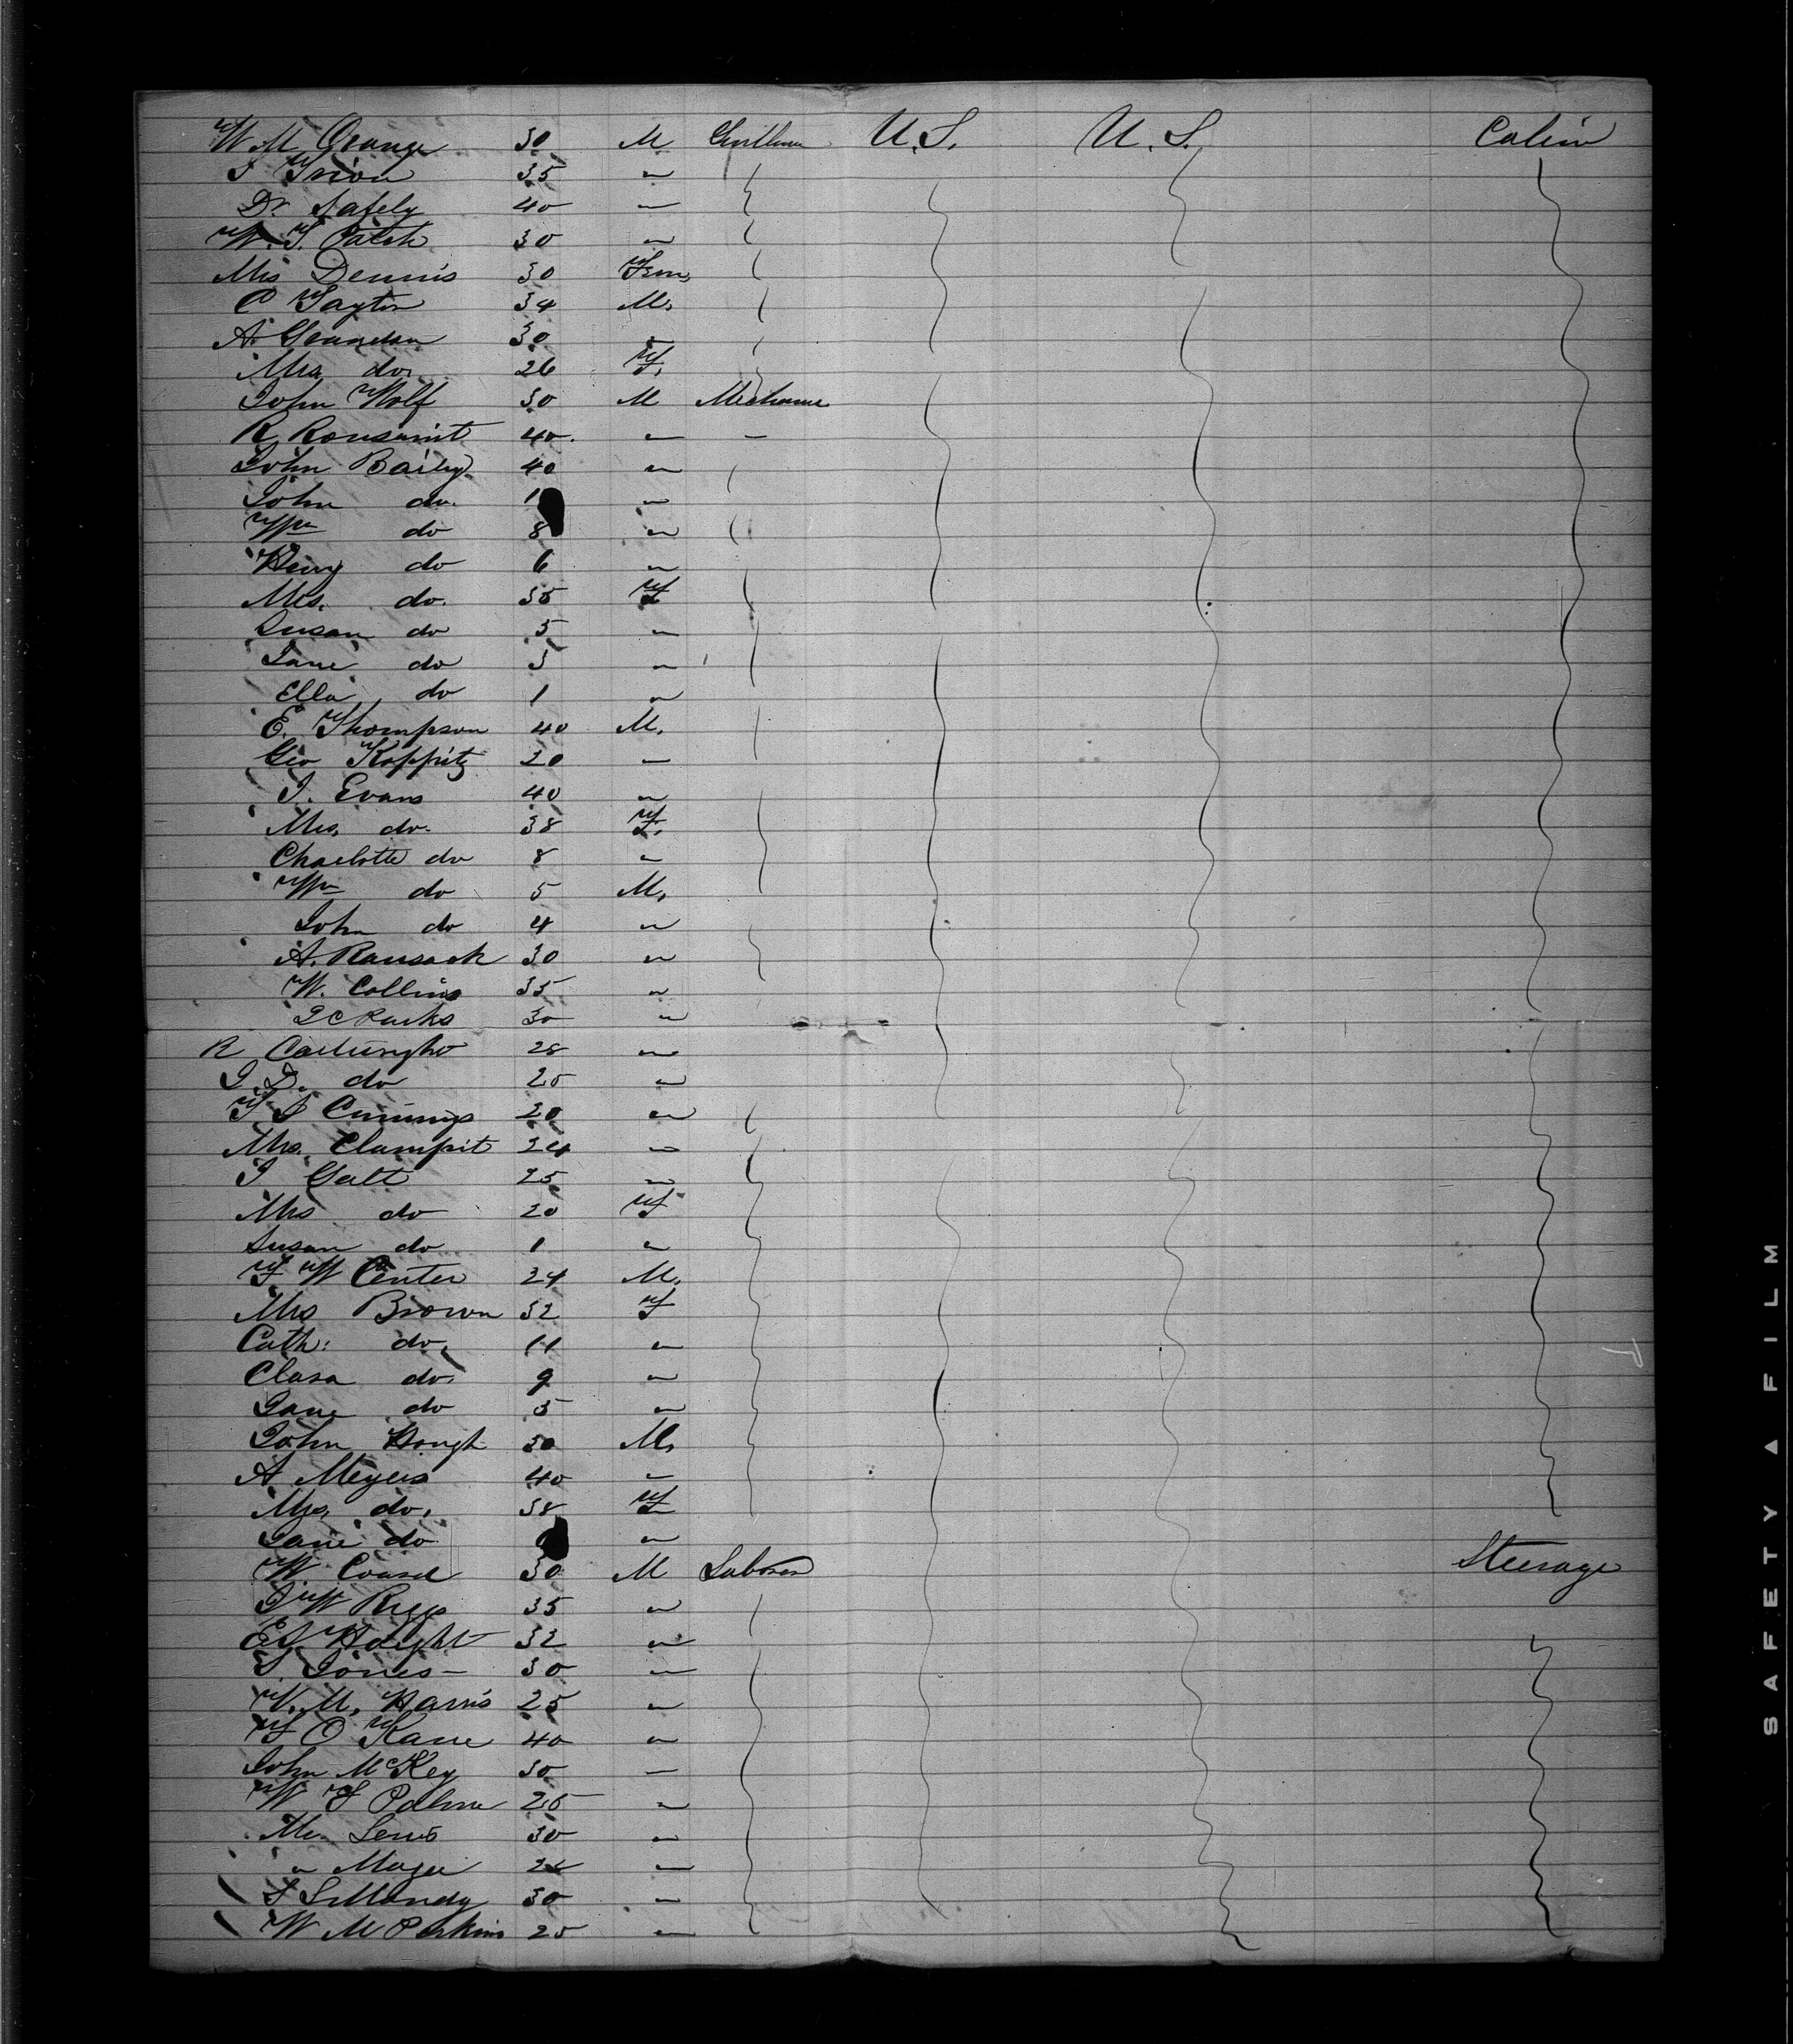 W M Orange 30 M Gentleman U.S. U.S. Cabin
J Trion 35 "
Dr. Safely 40 "
W. T. Patch 30 "
Mrs Dennis 30 Fem,
C Taylor 34 M,
A. 30 "
Mrs do. 26 F.
John Wolf 30 M Mechanic
R 40. " "
John Baily 40 "
John do. 1 "
Wm do 8 "
Henry do 6 "
Mrs. do. 35 F
Susan do 5 "
Jane do 3 "
Ella do 1 "
E. Thompson 40 M.
Geo Koppitz 20 "
J. Evans 40 "
Mrs. do. 38 F.
Charlotte do 8 "
Wm do 5 M,
John do 4 "
A. Ransack 30 "
W. Collins 35 "
J C Parks 30 "
R 28 "
J. D. do 25 "
T J Cummings 20 "
Mrs. Clampit 24 "
J Galt 25 "
Mrs do 20 F
Susan do 1 "
F W Center 24 M.
Mrs Brown 32 F
Cath: do. 11 "
Clara do. 9 "
Jane do 5 "
John Hough 30 M,
A Meyers 40 "
Mrs. do. 38 F
Jane do "
W 30 M Laborer Steerage
J W Riggs 35 "
E J Haight 32 "
S. Jones 30 "
W. M. Harris 25 "
F O Kane 40 "
John McKey 30 "
W F Palmer 25 "
Mr. Lewis 30 "
" Mayer 24 "
30 "
W M Perkins 25 "
SAFETY ▲ FILM